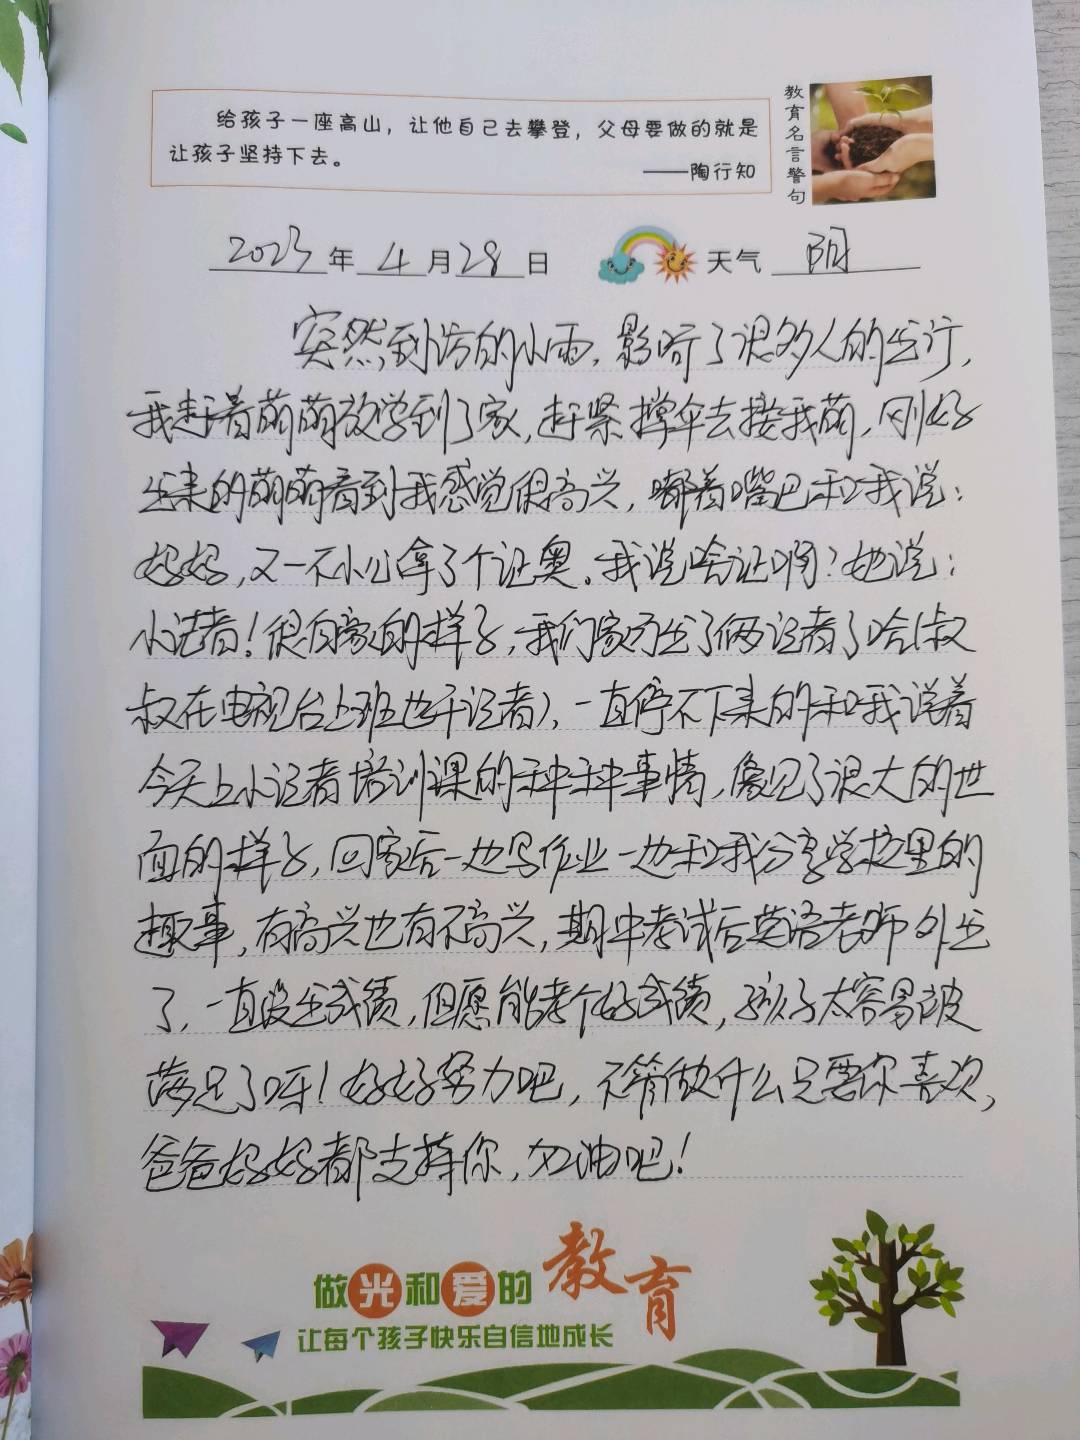 给孩子一座高山，让他自己去攀登，父母要做的就是
让孩子坚持下去。
——陶行知
教育名言警句
2023年 4月28日 天气 阴
突然到访的小雨，影响了很多人的出行，
我赶着萌萌放学到了家，赶紧撑伞去接我萌，刚好
出来的萌萌看到我感觉很高兴，嘟着嘴巴和我说：
妈妈，又一不小心拿了个证奥。我说啥证啊？她说：
小记者！很自豪的样子，我们家可出了俩记者了哈(叔
叔在电视台上班也干记者)，一直停不下来的和我说着
今天上小记者培训课的种种事情，像见了很大的世
面的样子，回家后一边写作业一边和我分享学校里的
趣事，有高兴也有不高兴，期中考试后英语老师外出
了，一直没出成绩，但愿能考个好成绩，孩子太容易被
满足了呀！好好努力吧，不管做什么只要你喜欢，
爸爸妈妈都支持你，加油吧！
做光和爱的教育
让每个孩子快乐自信地成长